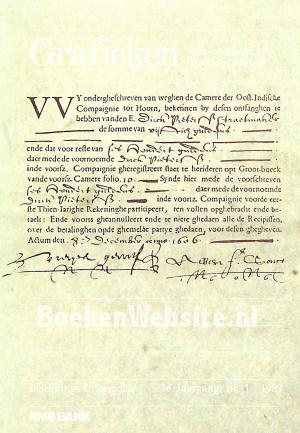 Grafieken
VVY ondergheschreven van weghen de Camere der Oost-Indische
Compaignie tot Hoorn, bekennen by desen ontfanghen te
hebben vanden E. Dirck Pietersz Straetmaker
de somme van vijftich guldens
ende dat voor reste van ses hondert guldens
daer mede de voornoemde Dirck Pietersz
inde voorsz. Compagnie gheregistreert staet te herideren opt Groot-boeck
vande voorsz. Camere folio. 10. Synde hier mede de voorschreven
ses hondert guldens daer mede de voornoemde
Dirck Pietersz inde voorsz. Compagnie voorde eer-
ste Thien-Iarighe Rekeninghe participeert, ten vollen opghebracht ende be-
taelt: Ende voorts ghenannulleert ende te niete ghedaen alle de Recipissen,
over de betalinghen opde ghemelde partye ghedaen, voor desen ghegheven.
Actum den 9. December anno 1606.
BoekenWebsite.nl
Beleggings Informatie 26 Jaargang, nr. 1 1989
NMB BANK